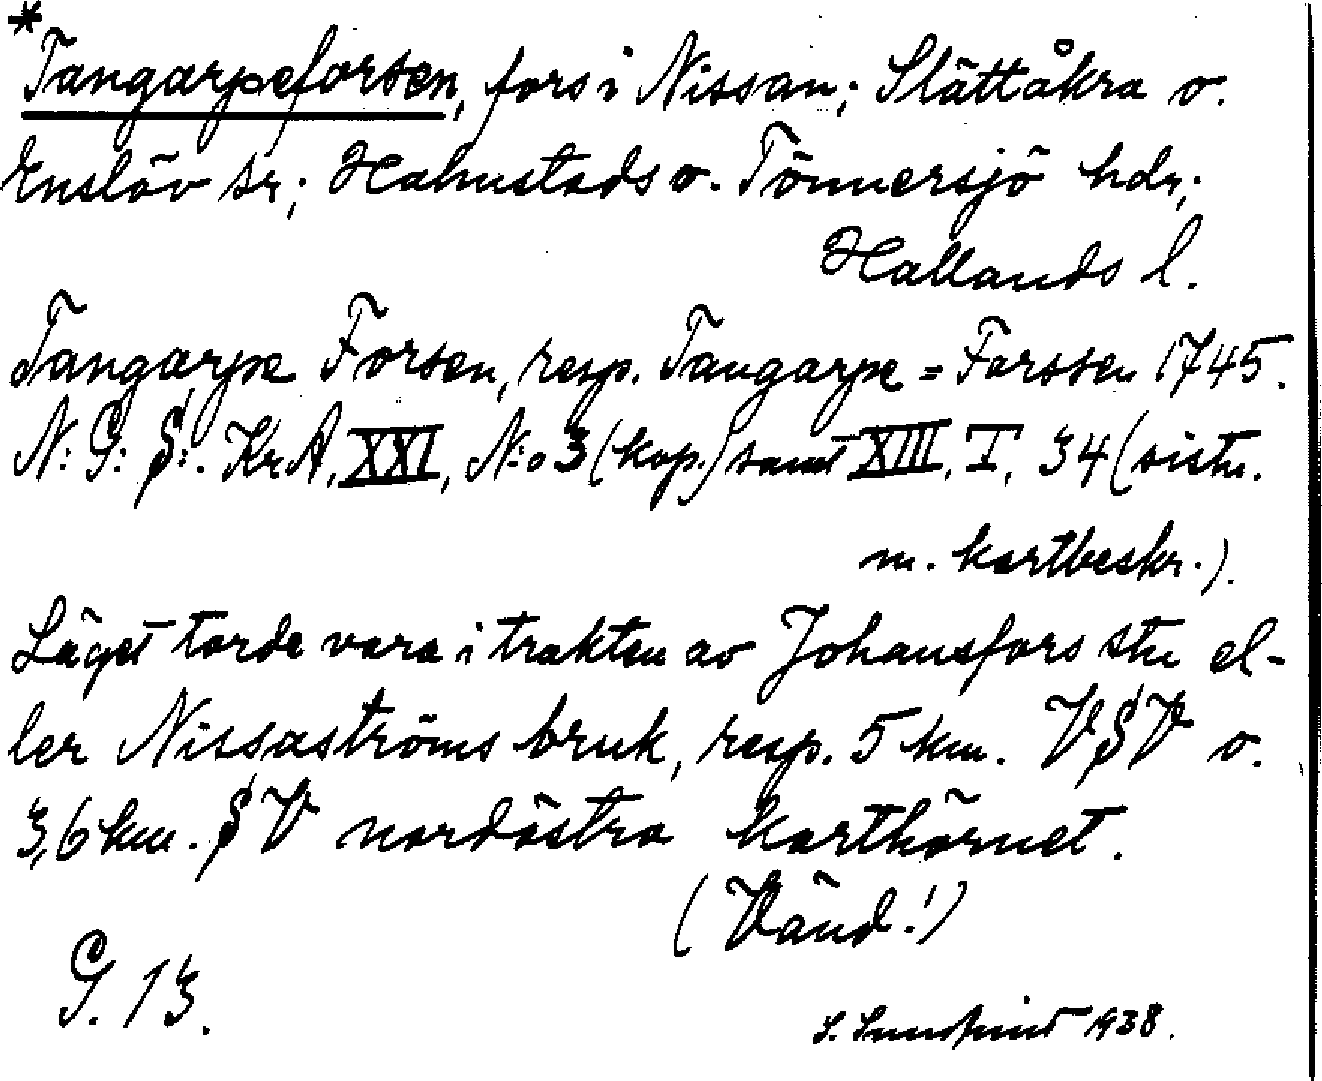 *Tangarpeforsen, fors i Nissan; Slättåkra o.
Enslöv sr; Halmstads o. Tönnersjö hdr;
Hallands l.
Tangarpe Forsen, resp. Tangarpe=Forssen 1745.
N: G: S:. Kr A, XXI, N:o 3 (kop.) samt XIII, I, 34 (sistn.
m. kartbeskr.).
Läget torde vara i trakten av Johansfors stn el-
ler Nissaströms bruk, resp. 5 km. VSV o.
3,6 km. SV nordöstra karthörnet.
(Vänd!)
G. 13.
1938.